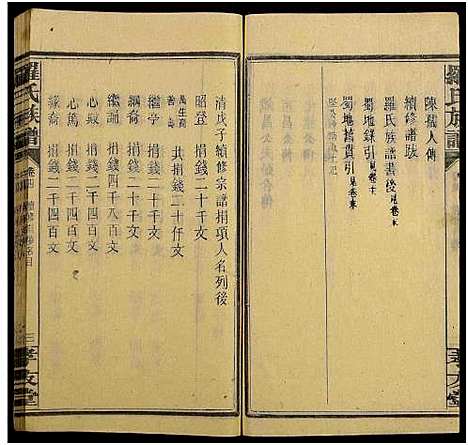 羅氏族譜
陳孺人傳
續修譜跋
羅氏族譜書後 見卷末
蜀地錄引 見卷末
蜀地舊貫引 見卷末
清戊子續修宗譜捐項人名列後
昭登 捐錢二十千文
萬生齋 共捐錢二十仟文
繼學 捐錢二千四百文
繼誦 捐錢四千八百文
心畝 捐錢二千四百文
綱裔 捐錢二千四百文
心萬 捐錢二千四百文
緣裔 捐錢二千四百文
羅氏族譜
三
孝友堂